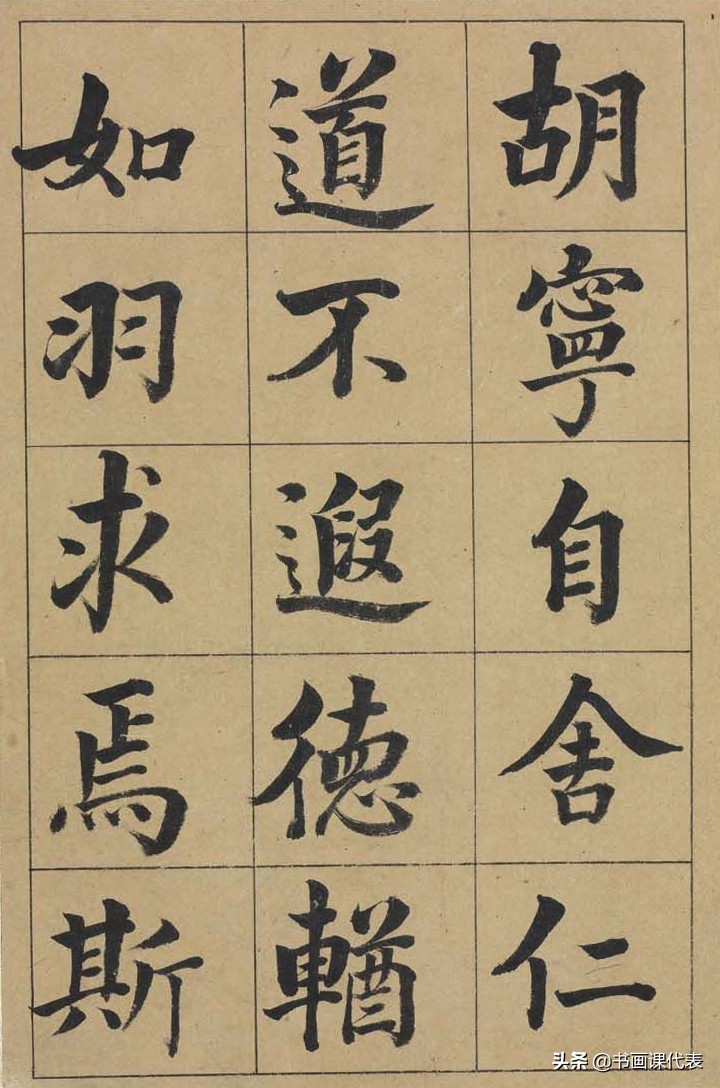 胡寧自舍仁
道不遐德輶
如羽求焉斯
头条 @书画课代表